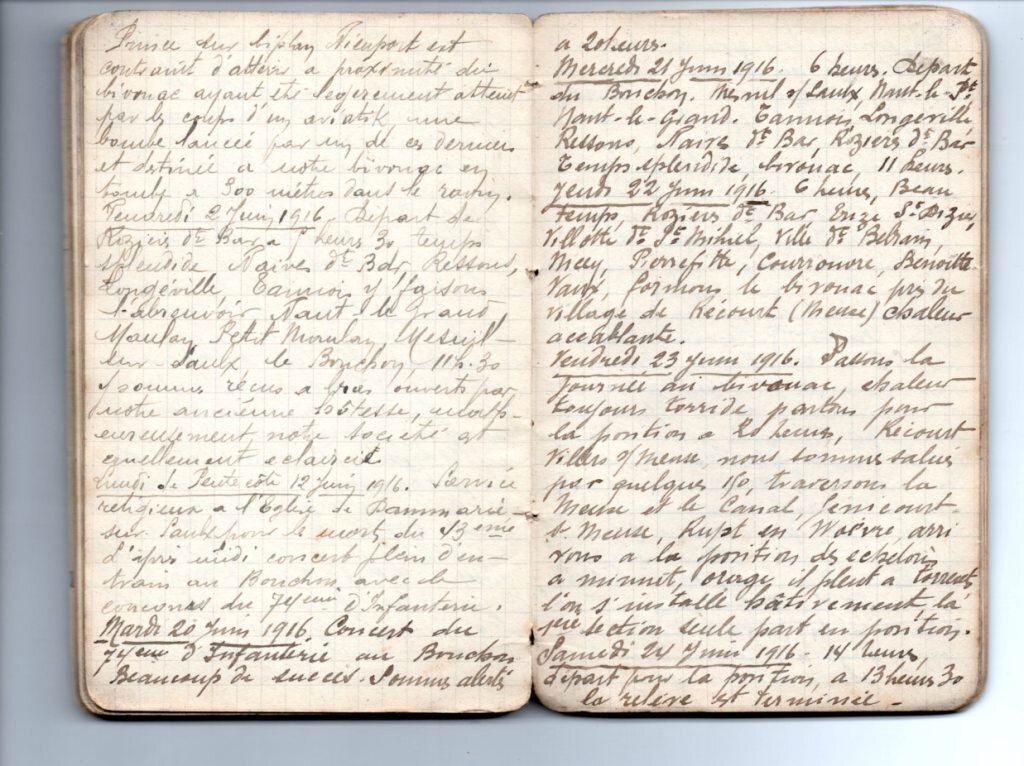 Prince sur biplan Nieuport est
contraint d'attérir a proximité du
bivouac ayant été legerement atteint
par les coups d'un aviatik une
bombe lancée par un de ces derniers
et destinée a notre bivouac en
tombe a 300 mètres dans le ravin.
Vendredi 2 Juin 1916. Départ de
Roziers dt Bar a heurs 30 temps
splendide Naives dt Bar, Ressons,
Longéville Tannois y faisons
l'abreuvoir Nant le Grand
Maulan Petit Moulan, Mesnil-
sur Saulx le Bouchon 11h.30
sommes réçus a bras ouverts par
notre anciénne hôtesse, malh-
eureusement, notre société est
cruellement eclaircie
Lundi de Pentecôte 12 Juin 1916. Service
religieux a l'Eglise de Dammarie-
sur Saulx pour les morts du 43eme
l'après midi concert plein d'en-
train au Bouchon avec le
concours du 74eme d'Infanterie.
Mardi 20 Juin 1916. Concert du
74eme d'Infanterie au Bouchon
Beaucoup de succès. Sommes alertés
a 20 heurs.
Mercredi 21 Juin 1916. 6 heurs. Départ
du Bouchon. Mesnil s/Saulx, Nant-le-Pt
Nant-le-Grand. Tannois, Longeville
Ressons, Naives dt Bar, Roziers dt Bar
Temps splendide, bivouac, 11 heurs.
Jeudi 22 Juin 1916. 6 heures, Beau
temps, Roziers dt Bar, Erize St Dizier,
Villotte dt St Mihiel, Ville dt Belrain,
Nicey, Pierrefitte, Courrouvre, Benoitte
Vaux, formons le bivouac près du
village de Récourt (Meuse) chaleur
accablante.
Vendredi 23 Juin 1916. Passons la
Journée au bivouac, chaleur
toujours torride partons pour
la position a 20 heurs, Récourt
Villers s/Meuse, nous sommes salués
par quelques 150, traversons la
Meuse et le Canal, Genicourt-
s. Meuse, Rupt en Woëvre, arri
vons a la position des echelons
a minuit, orage, il pleut a torrents
l'on s'installe hâtivement, la
1ere section seule part en position.
Samedi 24 Juin 1916. 14 heurs,
départ pour la position, a 13 heurs 30
la relève est terminée.